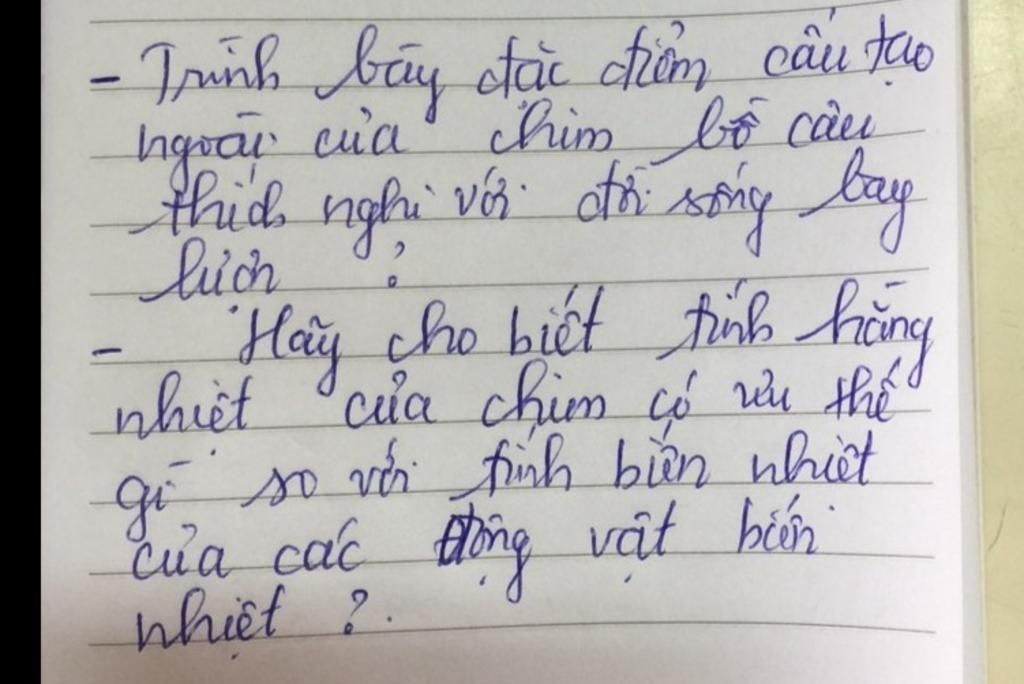 - Trình bày đặc điểm cấu tạo
ngoài của chim bồ câu
thích nghi với đời sống bay
lượn ?
- Hãy cho biết tính hằng
nhiệt của chim có ưu thế
gì so với tính biến nhiệt
của các động vật biến
nhiệt ?